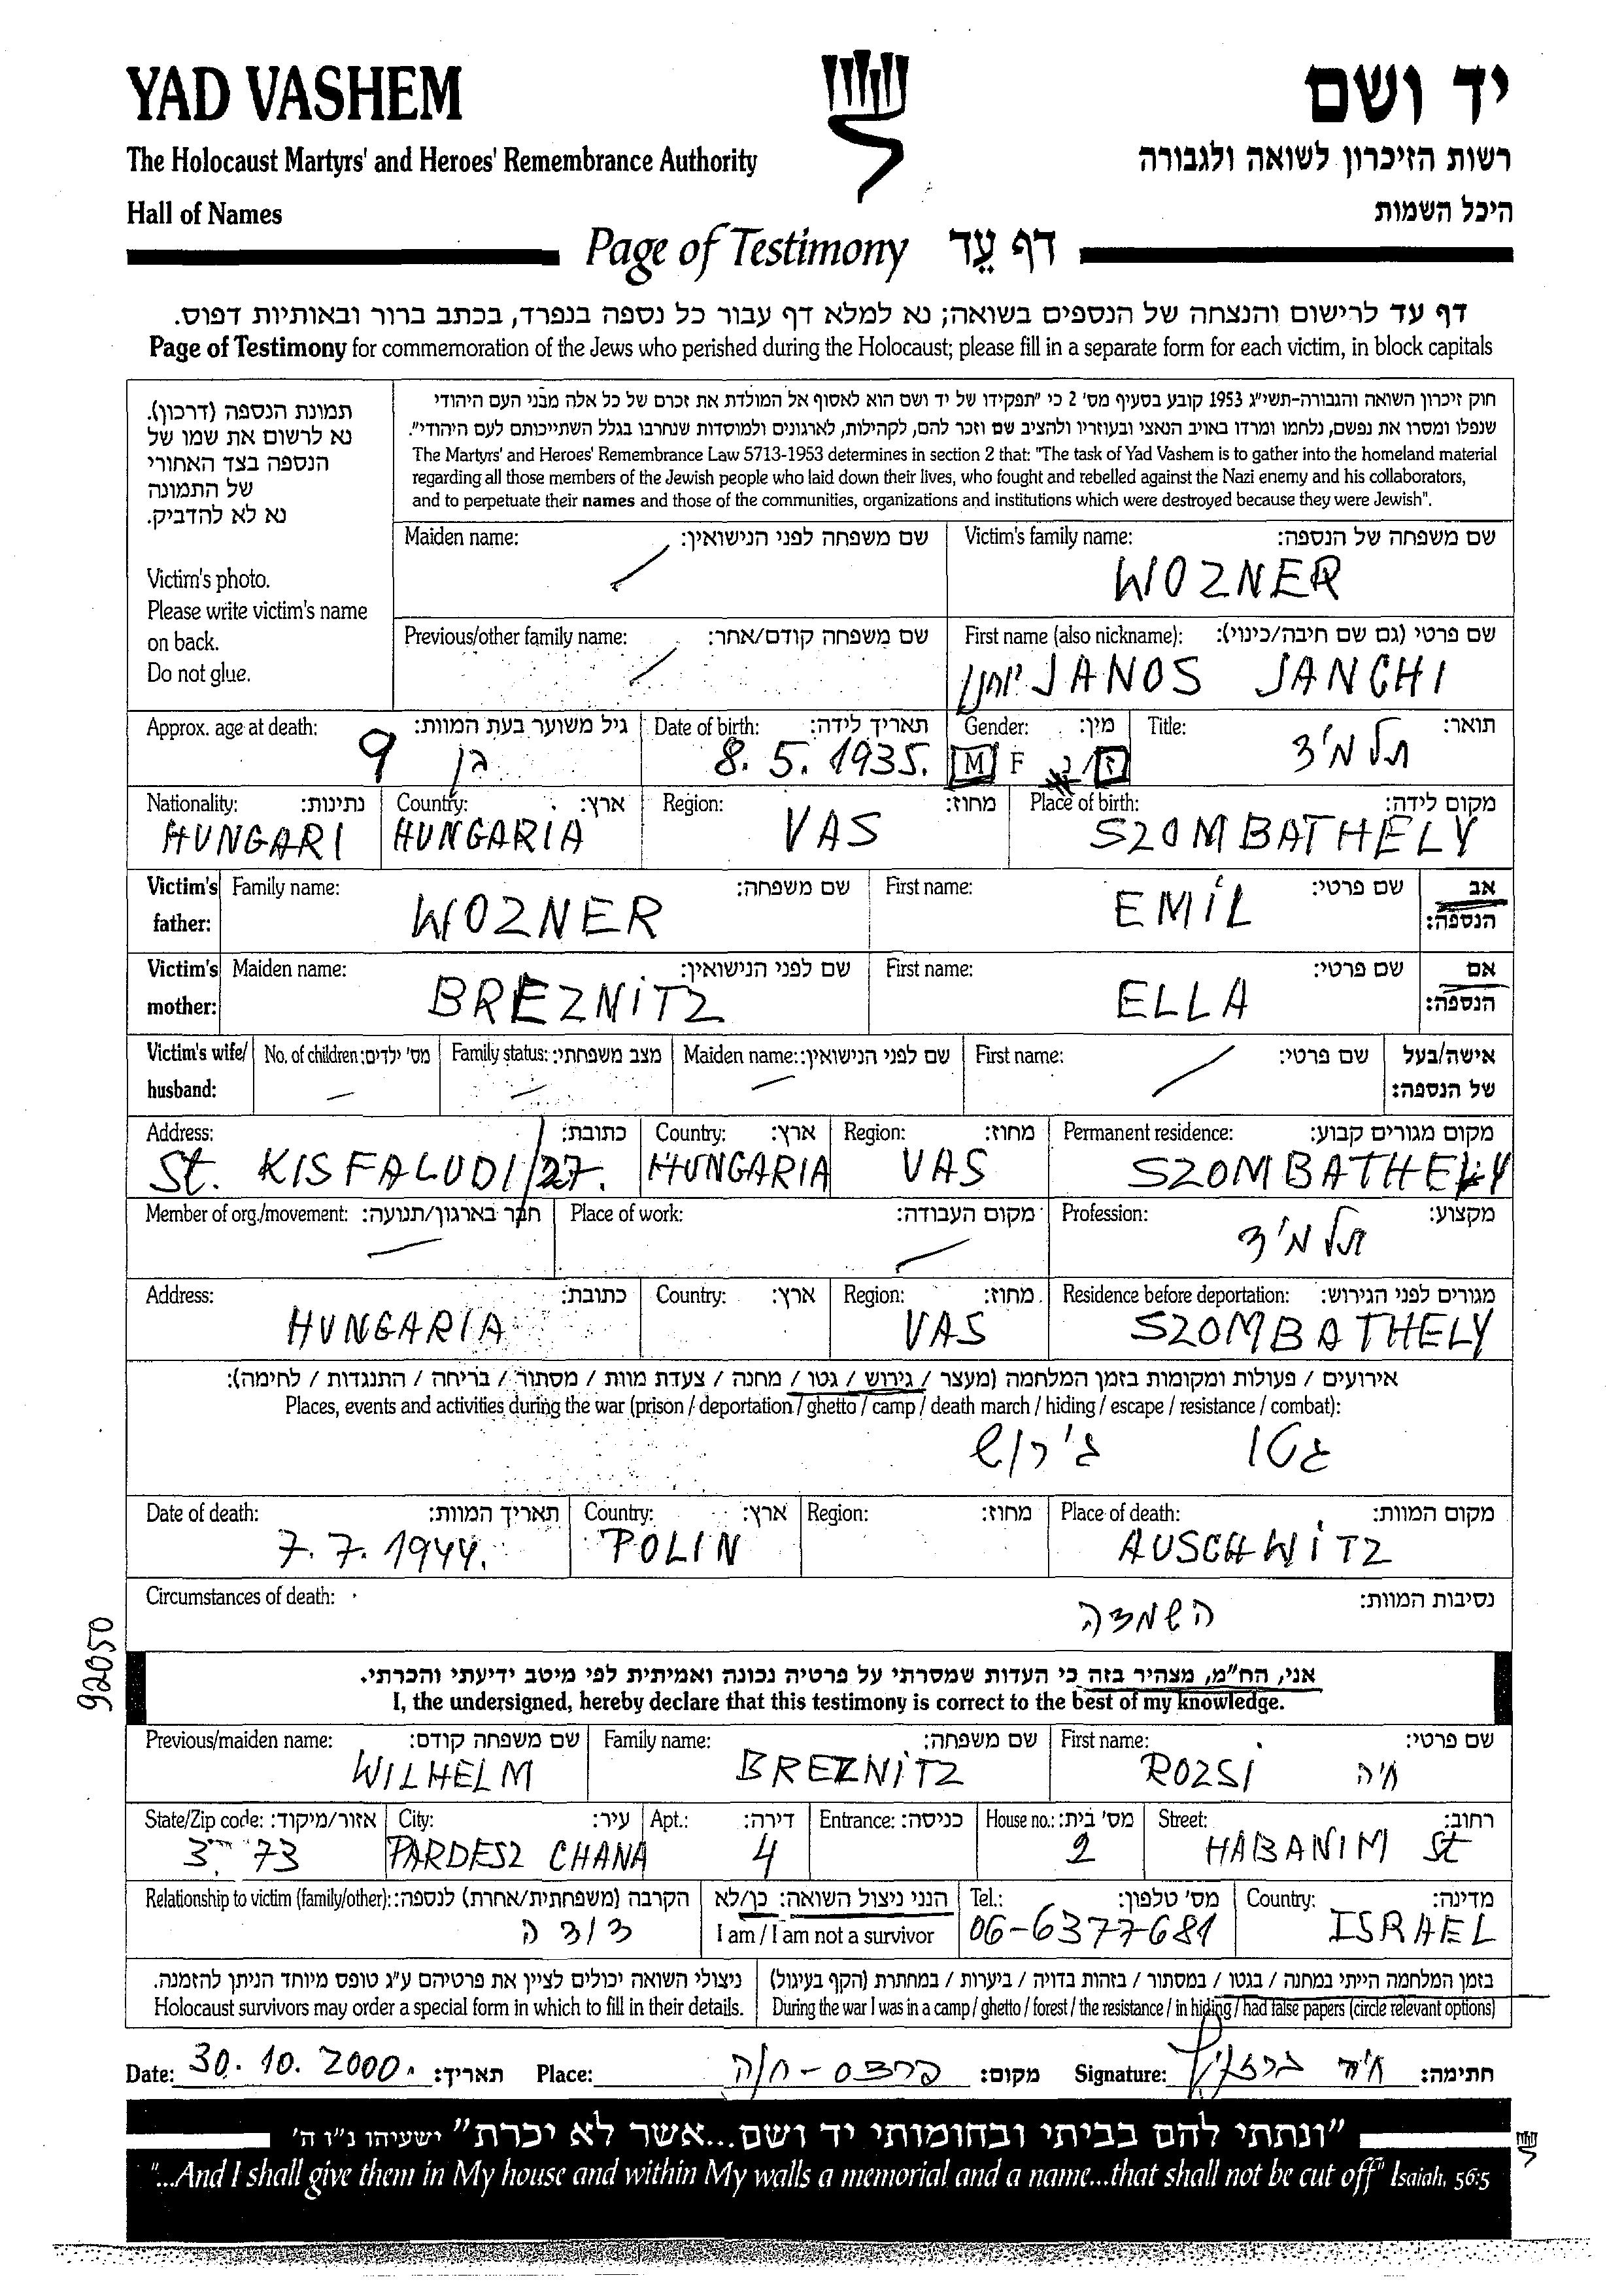 YAD VASHEM
יד ושם
The Holocaust Martyrs' and Heroes' Remembrance Authority
רשות הזיכרון לשואה ולגבורה
Hall of Names
היכל השמות
Page of Testimony דף עֵד
דף עד לרישום והנצחה של הנספים בשואה; נא למלא דף עבור כל נספה בנפרד, בכתב ברור ובאותיות דפוס.
Page of Testimony for commemoration of the Jews who perished during the Holocaust; please fill in a separate form for each victim, in block capitals
תמונת הנספה (דרכון).
נא לרשום את שמו של
הנספה בצד האחורי
של התמונה
נא לא להדביק.
Victim's photo.
Please write victim's name
on back.
Do not glue.
חוק זיכרון השואה והגבורה-תשי"ג 1953 קובע בסעיף מס' 2 כי "תפקידו של יד ושם הוא לאסוף אל המולדת את זכרם של כל אלה מבני העם היהודי
שנפלו ומסרו את נפשם, נלחמו ומרדו באויב הנאצי ובעוזריו ולהציב שם וזכר להם, לקהילות, לארגונים ולמוסדות שנחרבו בגלל השתייכותם לעם היהודי".
The Martyrs' and Heroes' Remembrance Law 5713-1953 determines in section 2 that: "The task of Yad Vashem is to gather into the homeland material
regarding all those members of the Jewish people who laid down their lives, who fought and rebelled against the Nazi enemy and his collaborators,
and to perpetuate their names and those of the communities, organizations and institutions which were destroyed because they were Jewish".
Maiden name: שם משפחה לפני הנישואין: Victim's family name: שם משפחה של הנספה:
WOZNER
Previous/other family name: שם משפחה קודם/אחר: First name (also nickname): שם פרטי (גם שם חיבה/כינוי):
יוחנן JANOS JANCHI
Approx. age at death: גיל משוער בעת המוות: Date of birth: תאריך לידה: Gender: מין: Title: תואר:
9 בן 8. 5. 1935. M F ז/נ תלמיד
Nationality: נתינות: Country: ארץ: Region: מחוז: Place of birth: מקום לידה:
HUNGARI HUNGARIA VAS SZOMBATHELY
Victim's father: Family name: שם משפחה: First name: שם פרטי: אב הנספה:
WOZNER EMIL
Victim's mother: Maiden name: שם לפני הנישואין: First name: שם פרטי: אם הנספה:
BREZNITZ ELLA
Victim's wife/ husband: No. of children: מס' ילדים: Family status: מצב משפחתי: Maiden name: שם לפני הנישואין: First name: שם פרטי: אישה/בעל של הנספה:
Address: כתובת: Country: ארץ: Region: מחוז: Permanent residence: מקום מגורים קבוע:
St. KISFALUDI/27. HUNGARIA VAS SZOMBATHELY
Member of org./movement: חבר בארגון/תנועה: Place of work: מקום העבודה: Profession: מקצוע:
תלמיד
Address: כתובת: Country: ארץ: Region: מחוז: Residence before deportation: מגורים לפני הגירוש:
HUNGARIA VAS SZOMBATHELY
אירועים / פעולות ומקומות בזמן המלחמה (מעצר / גירוש / גטו / מחנה / צעדת מוות / מסתור / בריחה / התנגדות / לחימה):
Places, events and activities during the war (prison / deportation / ghetto / camp / death march / hiding / escape / resistance / combat):
גטו גירוש
Date of death: תאריך המוות: Country: ארץ: Region: מחוז: Place of death: מקום המוות:
7. 7. 1944. POLIN AUSCHWITZ
Circumstances of death: נסיבות המוות:
השמדה
92050
אני, הח"מ, מצהיר בזה כי העדות שמסרתי על פרטיה נכונה ואמיתית לפי מיטב ידיעתי והכרתי.
I, the undersigned, hereby declare that this testimony is correct to the best of my knowledge.
Previous/maiden name: שם משפחה קודם: Family name: שם משפחה: First name: שם פרטי:
WILHELM BREZNITZ ROZSI חיה
State/Zip code: אזור/מיקוד: City: עיר: Apt.: דירה: Entrance: כניסה: House no.: מס' בית: Street: רחוב:
73 PARDESZ CHANA 4 2 HABANIM St
Relationship to victim (family/other): הקרבה (משפחתית/אחרת) לנספה: הנני ניצול השואה: כן/לא Tel.: מס' טלפון: Country: מדינה:
דודה I am / I am not a survivor 06-6377681 ISRAEL
ניצולי השואה יכולים לציין את פרטיהם ע"ג טופס מיוחד הניתן להזמנה.
Holocaust survivors may order a special form in which to fill in their details.
בזמן המלחמה הייתי במחנה / בגטו / במסתור / בזהות בדויה / ביערות / במחתרת (הקף בעיגול)
During the war I was in a camp / ghetto / forest / the resistance / in hiding / had false papers (circle relevant options)
Date: 30. 10. 2000. תאריך: Place: פרדס-חנה מקום: Signature: חיה ברזניץ חתימה:
"ונתתי להם בביתי ובחומותי יד ושם...אשר לא יכרת" ישעיהו נ"ו ה'
"...And I shall give them in My house and within My walls a memorial and a name...that shall not be cut off" Isaiah, 56:5